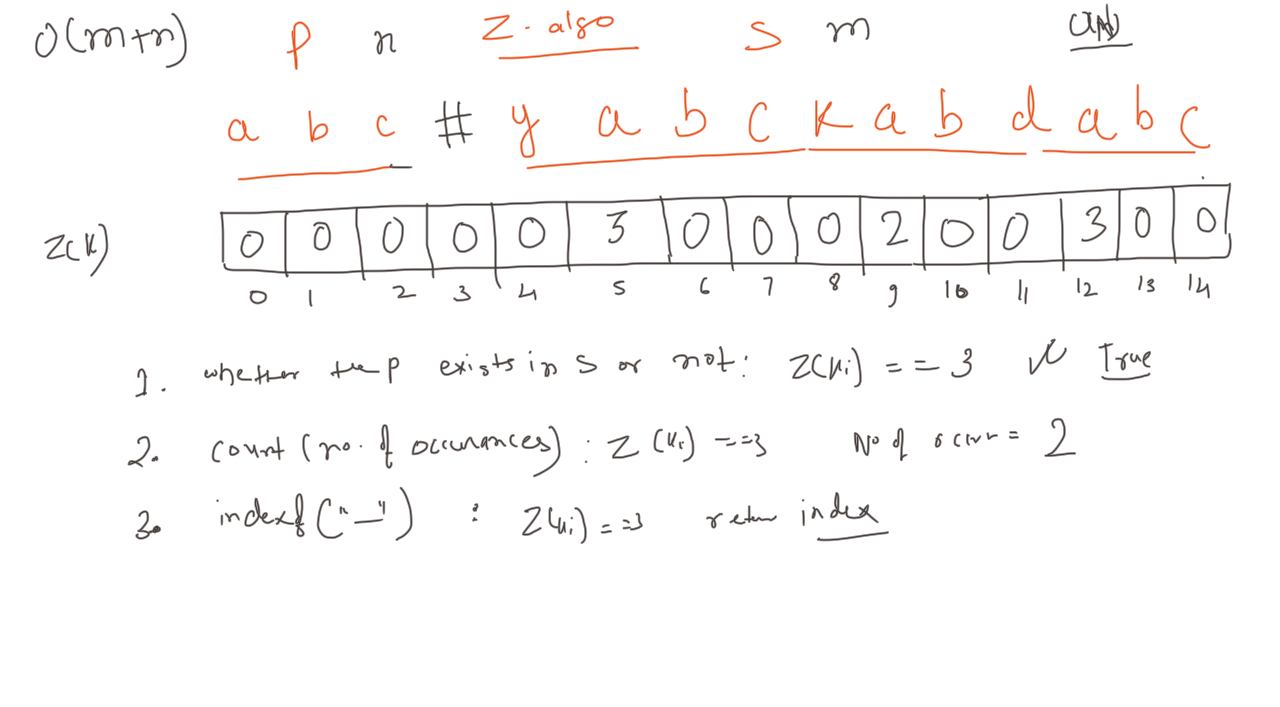 O(m+n) p n Z-algo S m
a b c # y a b c k a b d a b c
Z(k) 0 0 0 0 0 3 0 0 0 2 0 0 3 0 0
0 1 2 3 4 5 6 7 8 9 10 11 12 13 14
1. whether the p exists in S or not: Z(ki) == 3 True
2. count (no. of occurances) : Z (ki) ==3 No of occur = 2
3. indexof ("_") : Z(ki) ==3 return index